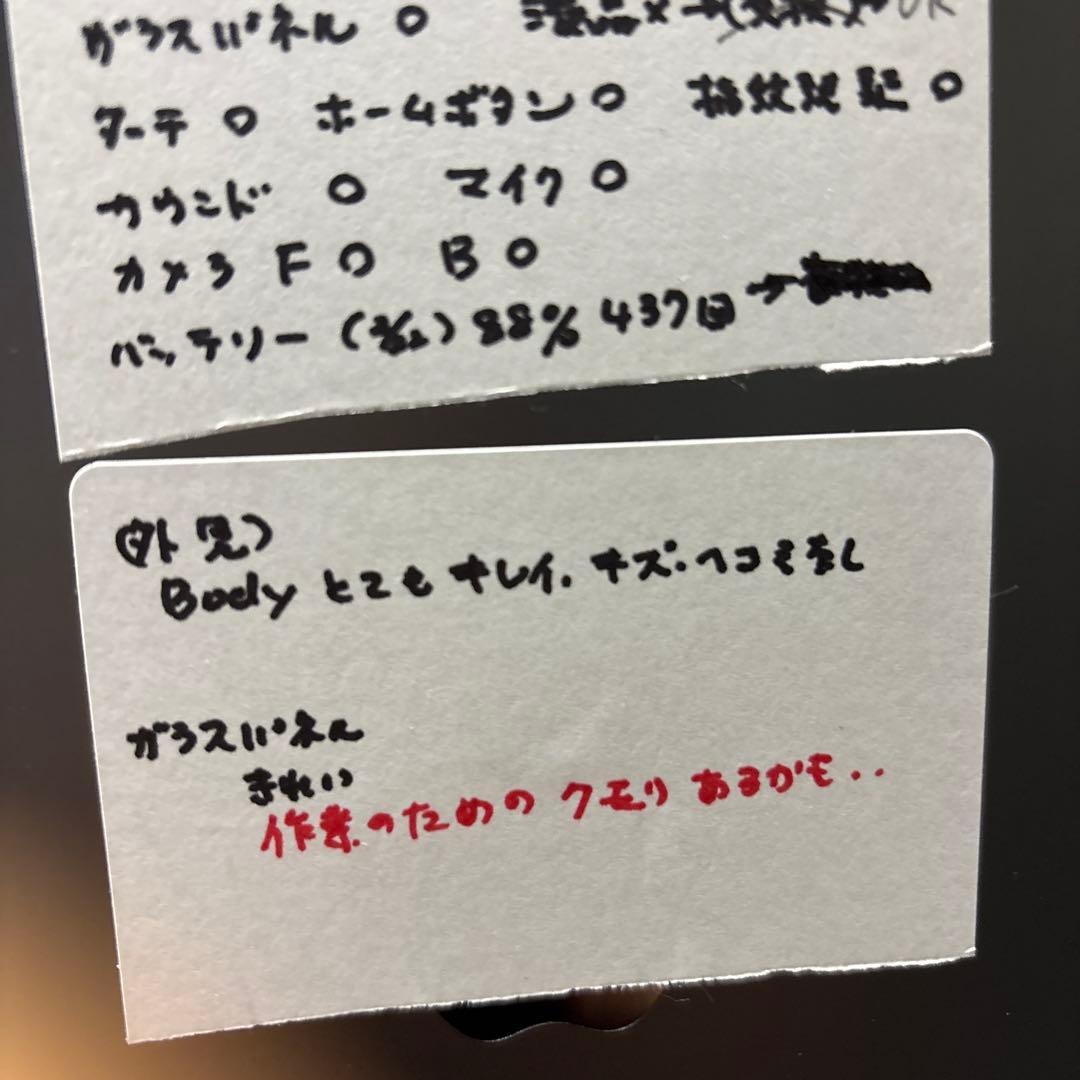 ガラスパネル ○ 液晶× →交換
ターチ ○ ホームボタン ○ 指紋認証 ○
サウンド ○ マイク ○
カメラ F ○ B ○
バッテリー 88% 437回 →
(外見)
Body とてもキレイ. キズ・ヘコミなし
ガラスパネル
きれい
作業のためのクモリあるかも..